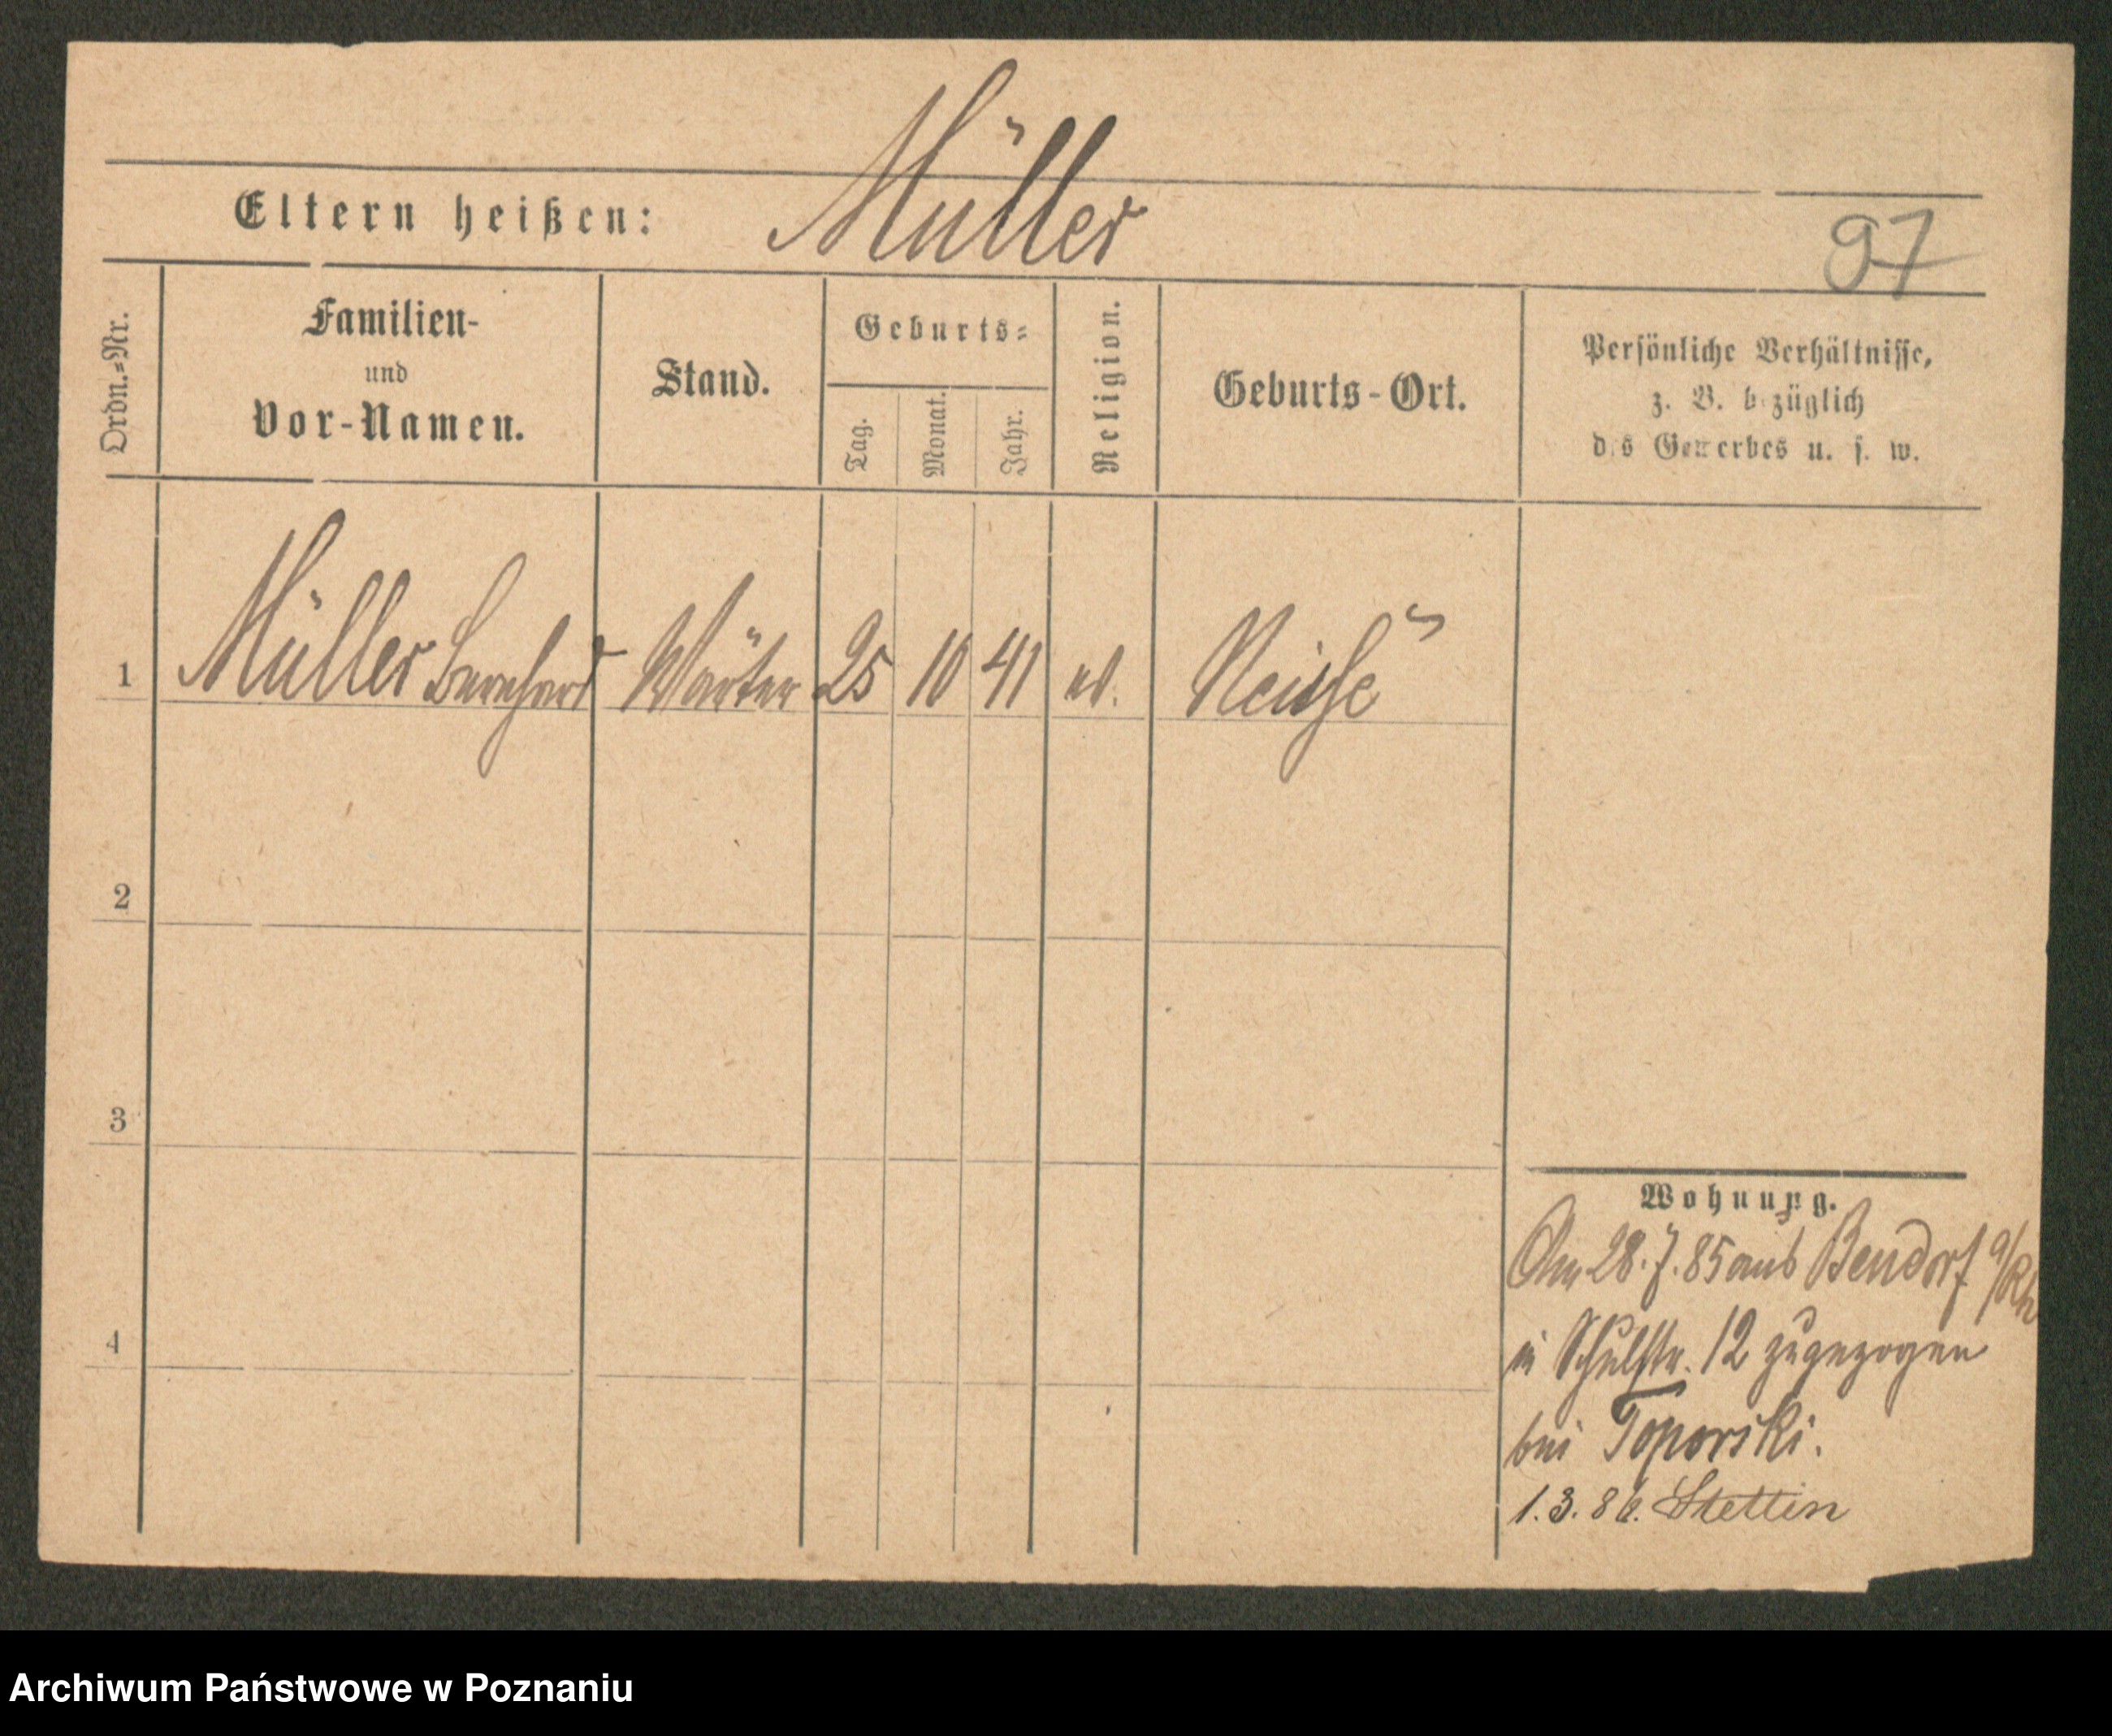 Müller
Eltern heißen:
97
Ordn.=Nr.
Familien-
und
Vor-Namen.
Stand.
Geburts=
Tag.
Monat.
Jahr.
Religion.
Geburts-Ort.
Persönliche Verhältnisse,
z. B. bezüglich
des Gewerbes u. s. w.
1 Müller Bernhard Wärter 25 10 41 ev. Neisse
2
3
4
Wohnung.
Am 28.7.85 aus Bendorf a/Rh
in Schulstr. 12 zugezogen
bei Toporski.
1.3.86. Stettin
Archiwum Państwowe w Poznaniu